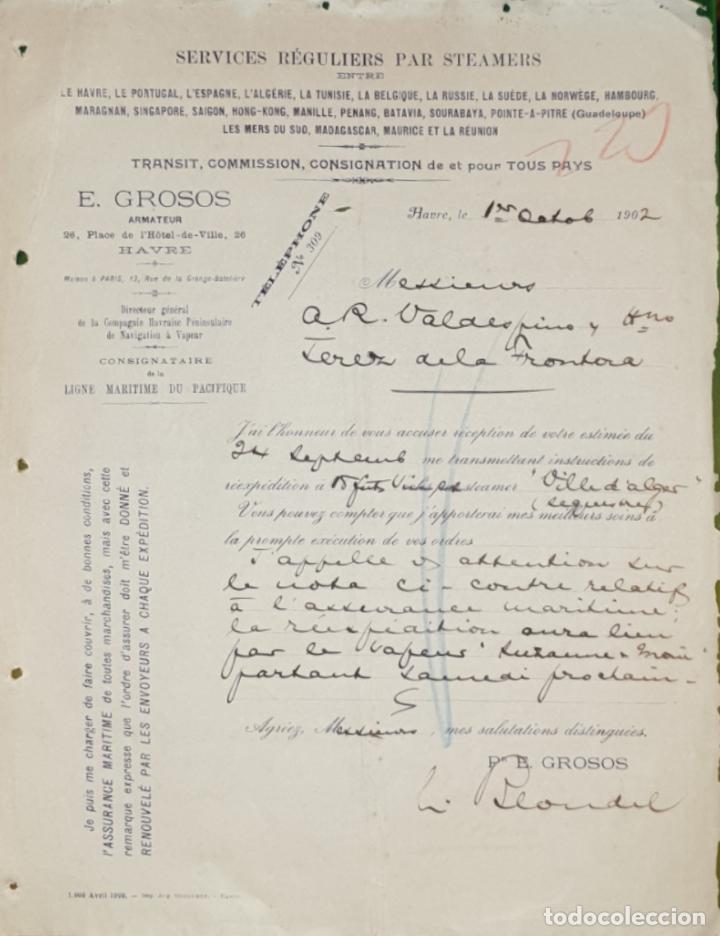 SERVICES RÉGULIERS PAR STEAMERS
ENTRE
LE HAVRE, LE PORTUGAL, L'ESPAGNE, L'ALGÉRIE, LA TUNISIE, LA BELGIQUE, LA RUSSIE, LA SUÈDE, LA NORWÈGE, HAMBOURG,
MARAGNAN, SINGAPORE, SAIGON, HONG-KONG, MANILLE, PENANG, BATAVIA, SOURABAYA, POINTE-A-PITRE (Guadeloupe)
LES MERS DU SUD, MADAGASCAR, MAURICE ET LA RÉUNION
TRANSIT, COMMISSION, CONSIGNATION de et pour TOUS PAYS
E. GROSOS
ARMATEUR
26, Place de l'Hôtel-de-Ville, 26
HAVRE
Maison à PARIS, 13, Rue de la Grange-Batelière
Directeur général
de la Compagnie Havraise Péninsulaire
de Navigation à Vapeur
CONSIGNATAIRE
de la
LIGNE MARITIME DU PACIFIQUE
TÉLÉPHONE
No 309
Havre, le 1er Octob 1902
Messieurs
A. R. Valdespino y Hno
Jerez de la Frontera
J'ai l'honneur de vous accuser réception de votre estimée du
24 Septemb me transmettant instructions de
réexpédition à steamer "Ville d'alger"
Vous pouvez compter que j'apporterai mes meilleurs soins à
la prompte exécution de vos ordres.
J'appelle attention sur
le nota ci-contre relatif
à l'assurance maritime;
la réexpédition aura lieu
par le vapeur "Suzanne
partant Samedi prochain
Agréez, Messieurs, mes salutations distinguées.
Pr E. GROSOS
Blondel
Je puis me charger de faire couvrir, à de bonnes conditions,
l'ASSURANCE MARITIME de toutes marchandises, mais avec cette
remarque expresse que l'ordre d'assurer doit m'être DONNÉ et
RENOUVELÉ PAR LES ENVOYEURS A CHAQUE EXPÉDITION.
todocoleccion